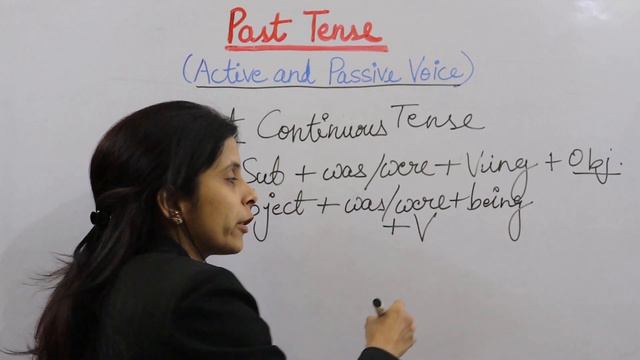 Past Tense
(Active and Passive Voice)
Continuous Tense
Sub + was/were + V1ing + Obj.
ject + was/were + being
+ V